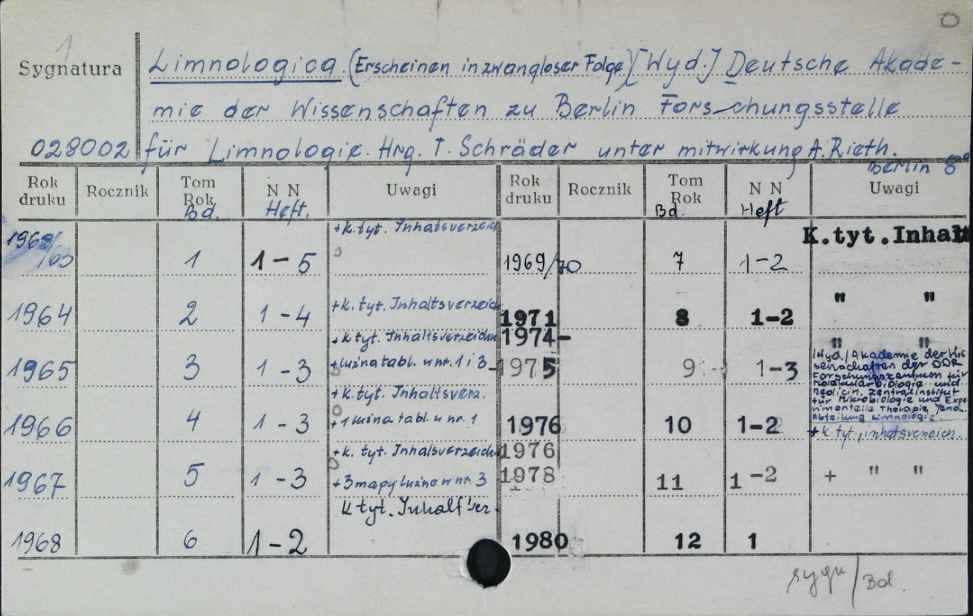 Sygnatura
Limnologica. (Erscheinen in zwangloser Folge) [Wyd.] Deutsche Akade-
mie der Wissenschaften zu Berlin Forschungsstelle
028002 für Limnologie. Hrg. T. Schräder unter mitwirkung A. Rieth.
Berlin 8°
Rok druku Rocznik Tom Rok Bd. N N Heft. Uwagi Rok druku Rocznik Tom Rok Bd. N N Heft Uwagi
+k.tyt. Inhaltsverzeich K.tyt.Inhalt
/60 1 1-5 1969/70 7 1-2
1964 2 1-4 +k. tyt. Inhaltsverzeich 1971 8 1-2 " "
+k tyt. Inhaltsverzeichn 1974- " "
1965 3 1-3 +luźna tabl. w nr. 1 i 3. 1975 9 1-3
[Wyd.] Akademie der Wis
senschaften der DDR
Forschungszentrum für
Molekularbiologie und
Medicin. Zentralinstitut
für Mikrobiologie und Expe
rimentelle Therapie, Jena.
Abteilung Limnologie
+k. tyt. Inhaltsverz.
1966 4 1-3 +1 luźna tabl. w nr. 1 1976 10 1-2
+k. tyt. Inhalsverzeichn 1976
1967 5 1-3 +3 mapy luźne w nr. 3 1978 11 1-2 + " "
k tyt. Inhalt'ver.
1968 6 1-2 1980 12 1
sygn/Bd.